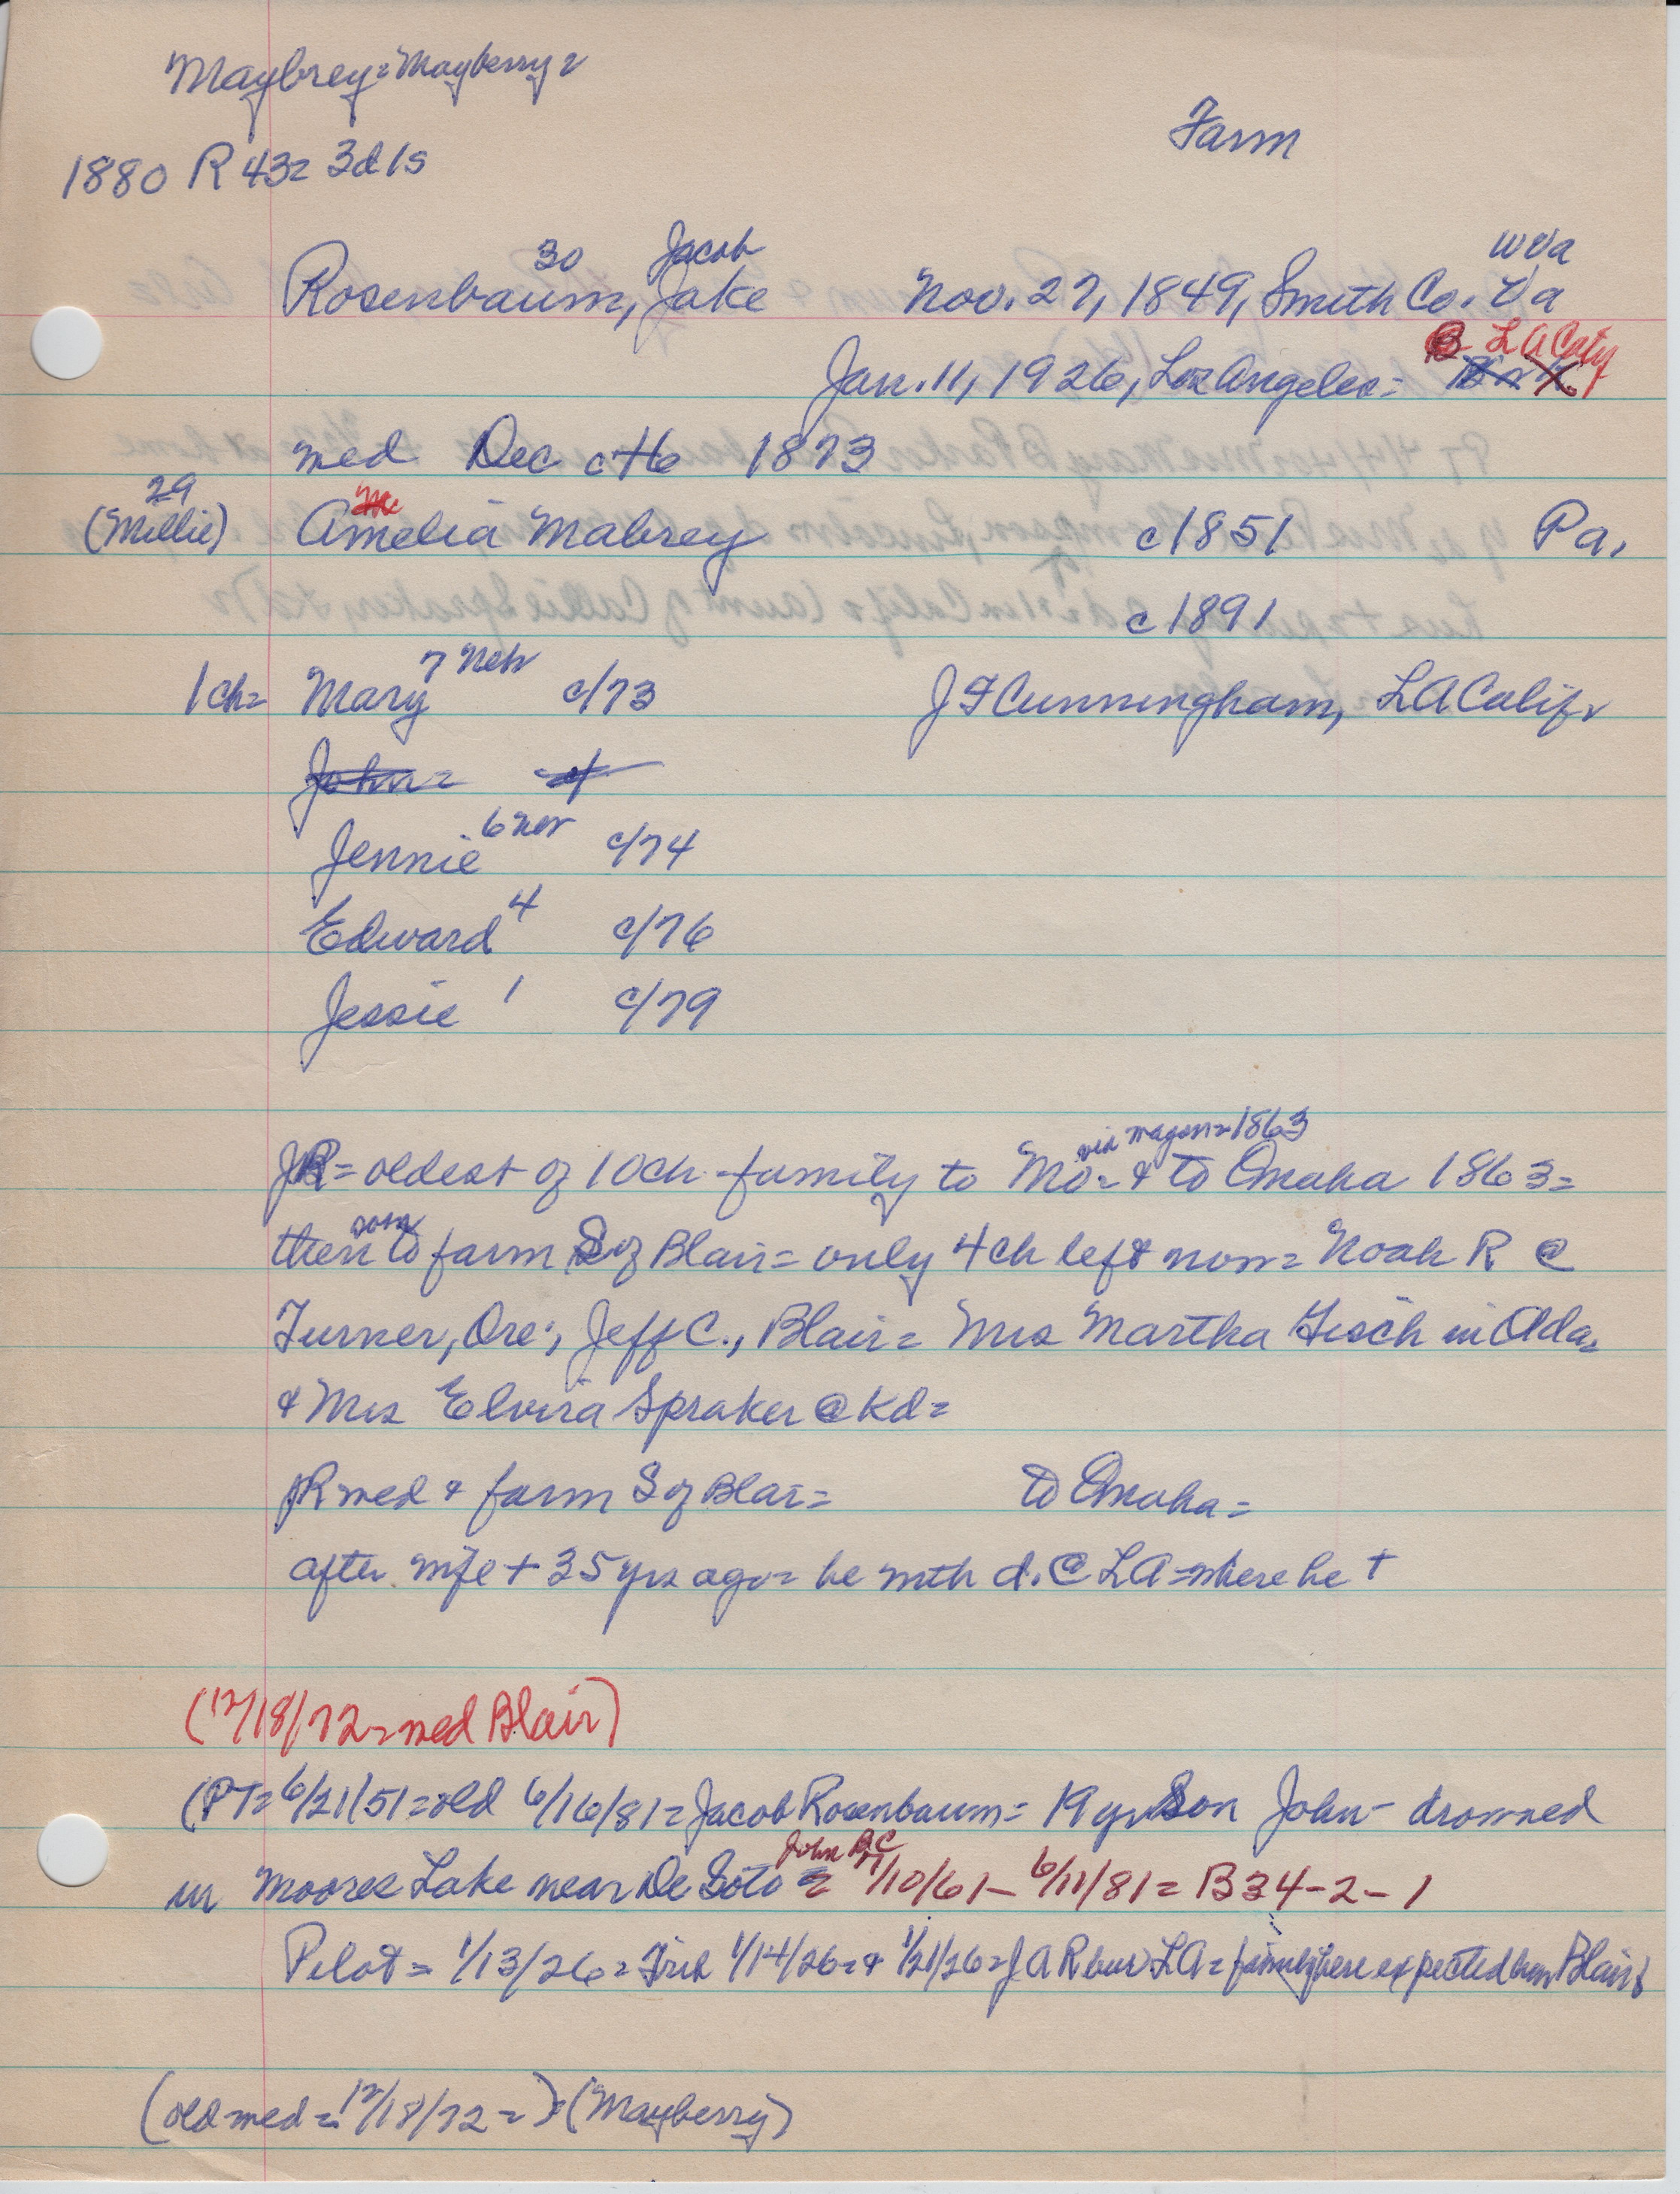 Maybrey = Mayberry =
Farm
1880 R 43 = 3d 1s
30 Jacob WVa
Rosenbaum, Jake Nov. 27, 1849, Smith Co. Va
B LA Caty
Jan. 11, 1926, Los Angeles =
med Dec c 1873
29 Me
(Millie) Amelia Mabrey c1851 Pa.
c1891
1 ch = Mary 7 Neb c/73 J F Cunningham, LA Calif
John = c/
Jennie 6 Neb c/74
Edward 4 c/76
Jessie 1 c/79
via wagon = 1863
JR = oldest of 10 ch - family to Mo = & to Omaha 1863 =
soon
then to farm S of Blair = only 4 ch left now = Noah R @
Turner, Ore; Jeff C., Blair = Mrs Martha Gisch in Ada,
& Mrs Elvira Spraker @ Kd =
JR med & farm S of Blar = to Omaha =
after wife + 35 yrs ago = he with d. @ LA = where he +
(12/18/72 = med Blair)
(PT = 6/21/51 = old 6/16/81 = Jacob Rosenbaum = 19 yr son John - drowned
John BC
in Moores Lake near De Soto = 7/10/61 - 6/11/81 = B34-2-1
Pilot = 1/13/26 = Trib 1/14/26 = & 1/21/26 = J A R bur LA = family here expected bur Blair
(old med = 12/18/72 = ) = (Mayberry)